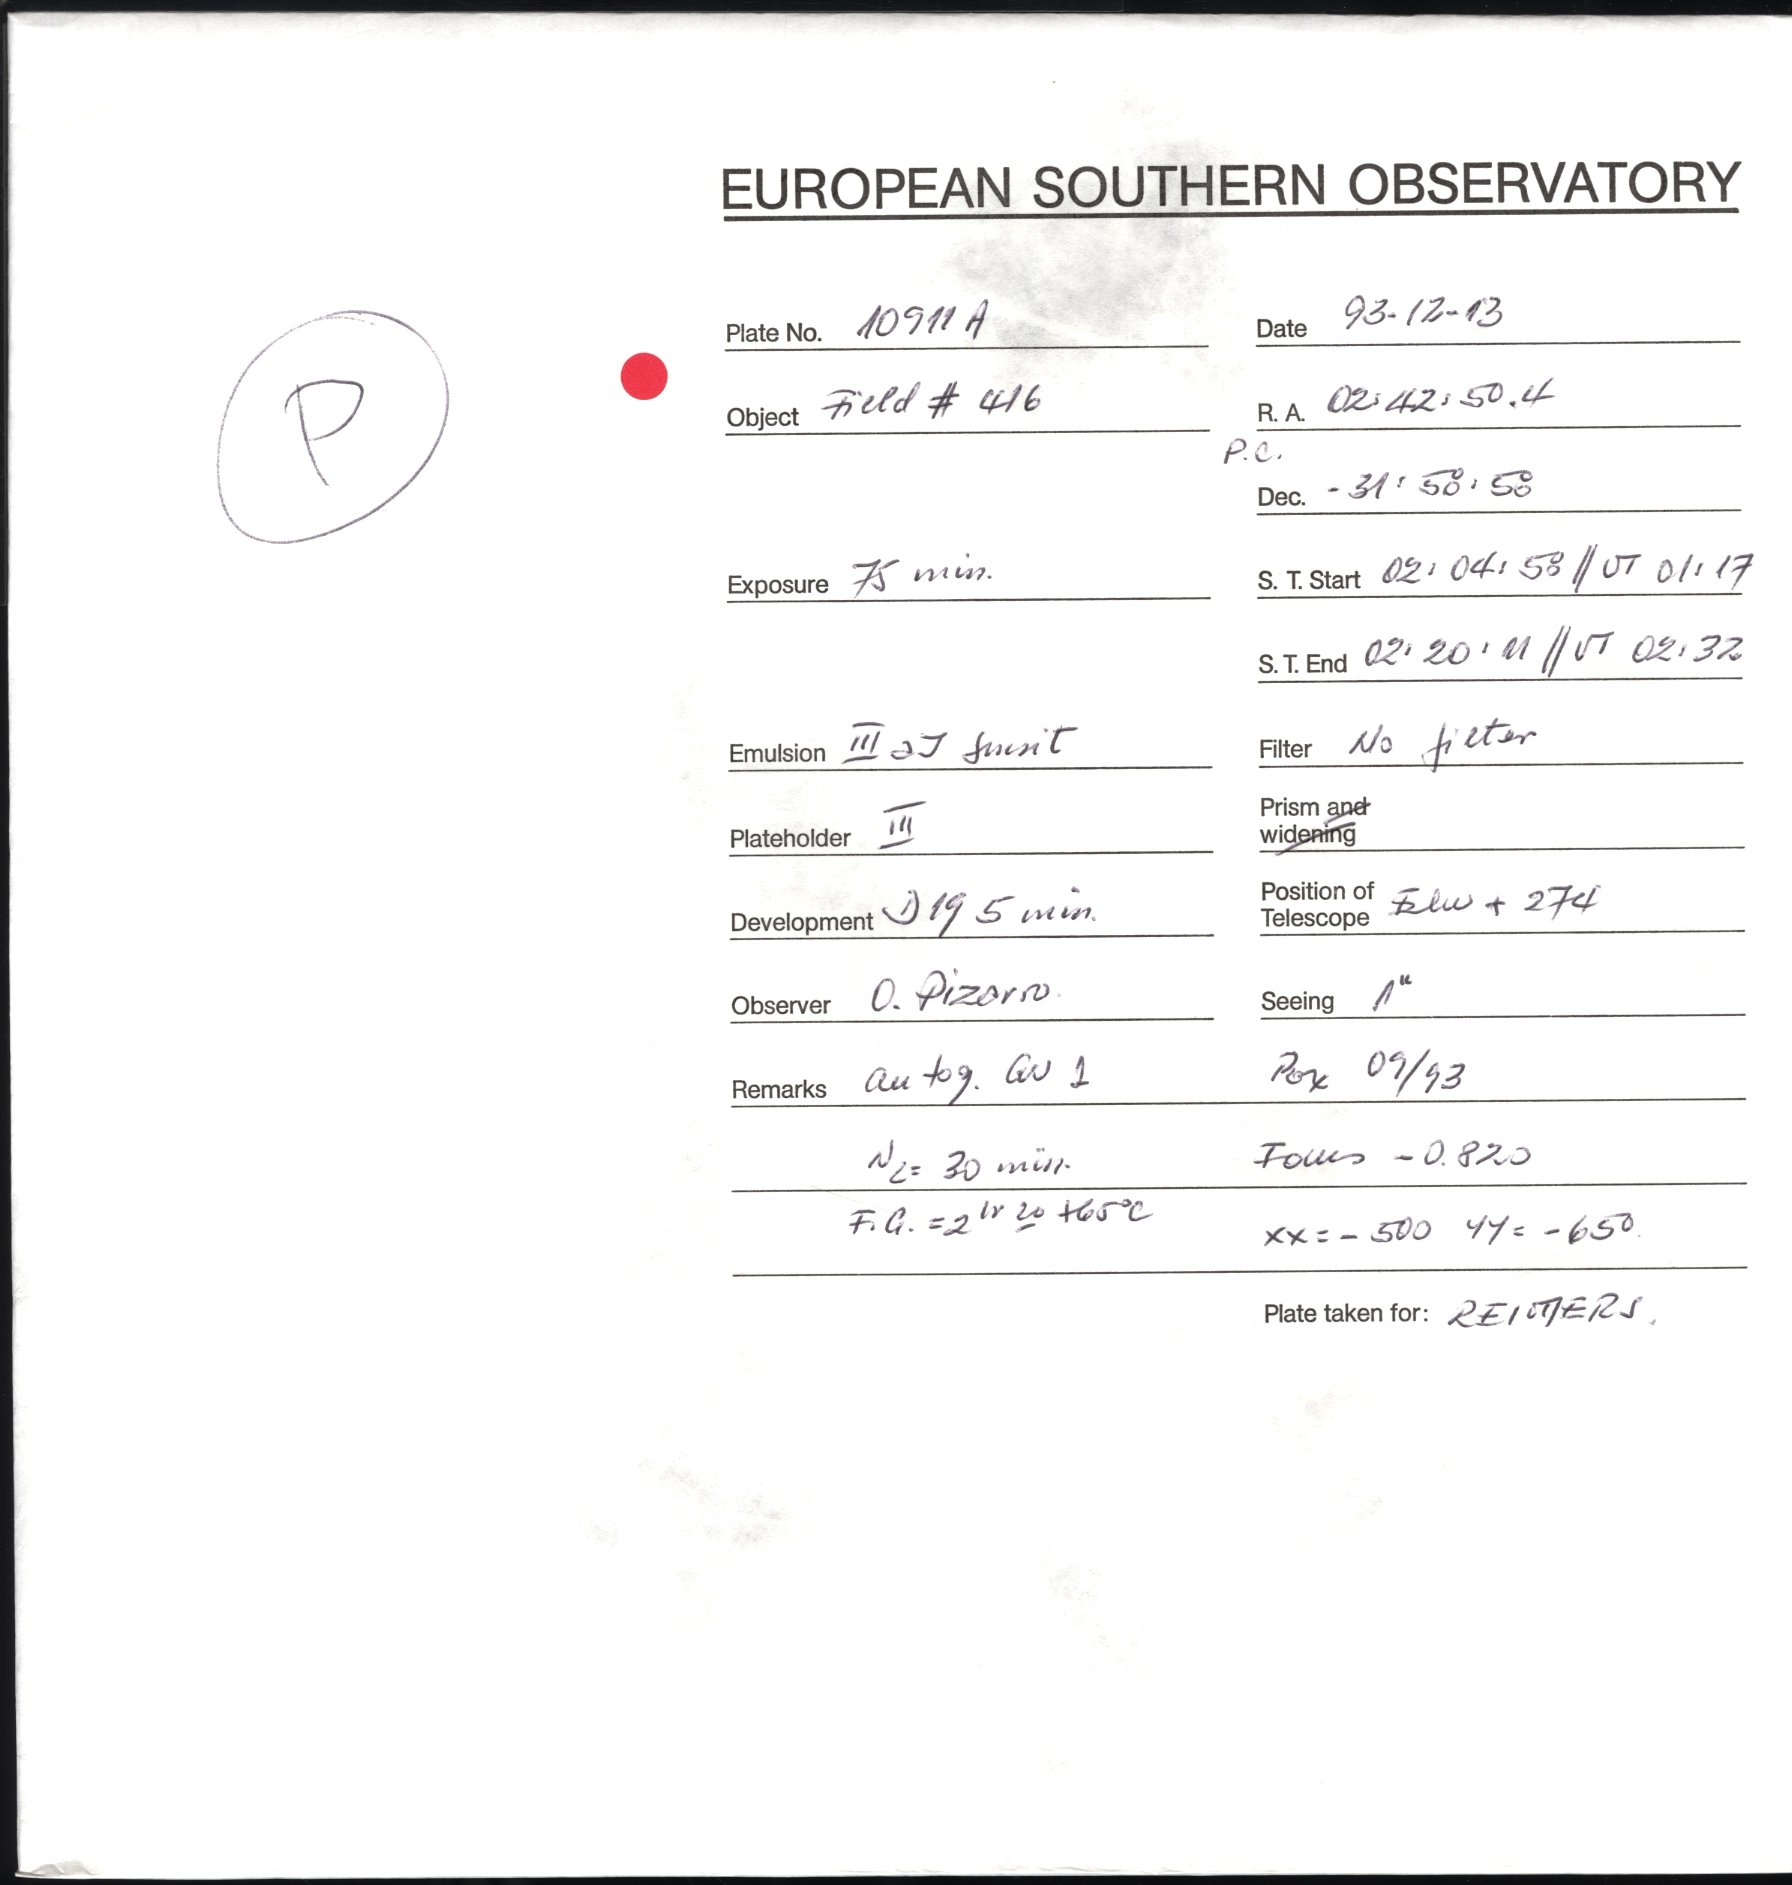 EUROPEAN SOUTHERN OBSERVATORY
P
Plate No. 10911 A
Date 93-12-13
Object Field # 416
R. A. 02:42:50.4
P.C.
Dec. -31:58:58
Exposure 75 min.
S. T. Start 02:04:58 // UT 01:17
S. T. End 02:20:11 // UT 02:32
Emulsion III aJ
Filter No filter
Plateholder III
Prism and
widening
Development D19 5 min.
Position of
Telescope + 274
Observer O. Pizarro
Seeing 1"
Remarks autog. GW 1
Box 09/93
N2= 30 min.
Focus -0.820
F.G. = 2 hr 20 +65°C
xx = -500 yy = -650
Plate taken for: REIMERS.